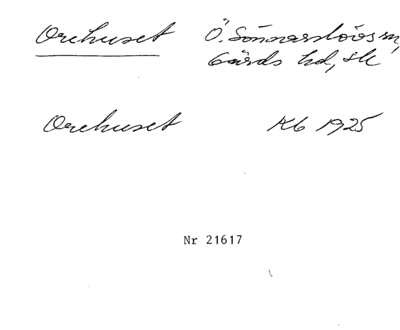 Orehuset Ö. Sönnarslövs sn,
Gärds hd, Sk
Orehuset Kb 1925
Nr 21617